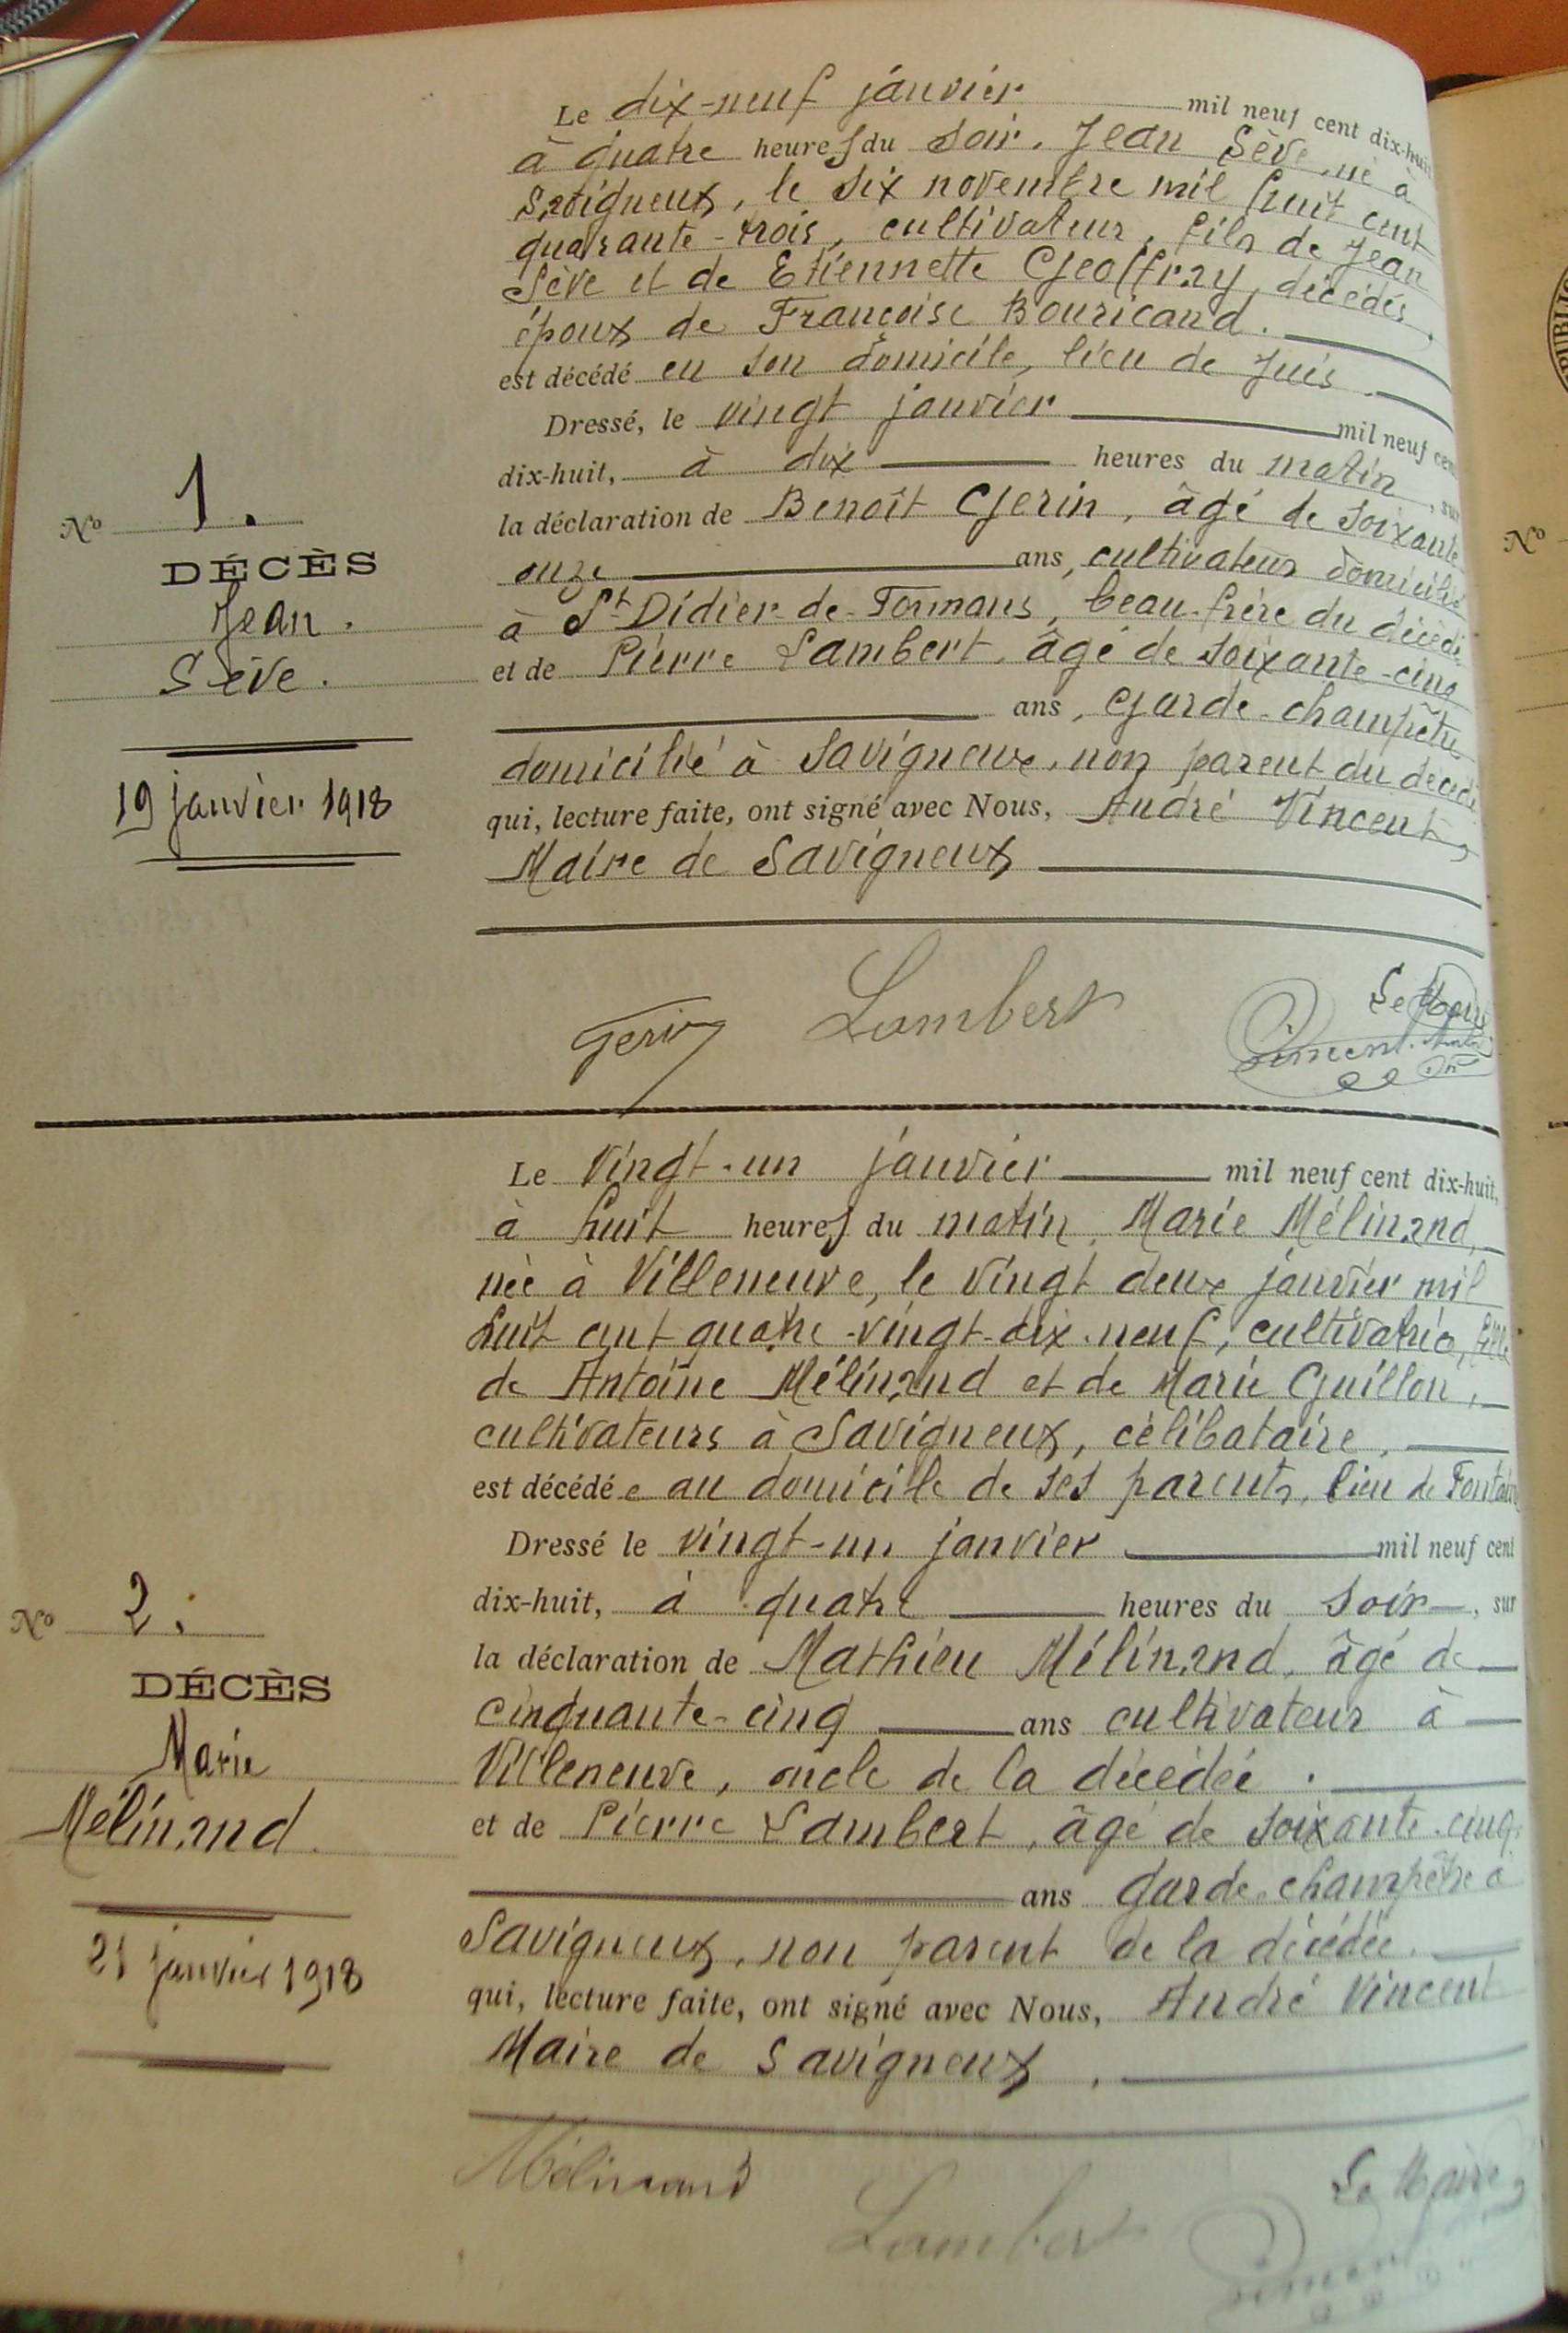 Le dix-neuf janvier mil neuf cent dix-huit
à quatre heures du soir, Jean Sève, né à
Savigneux, le six novembre mil huit cent
quarante-trois, cultivateur, fils de Jean
Sève et de Etiennette Geoffray, décédés,
époux de Françoise Bouricand.
est décédé en son domicile, lieu de Juis.
Dressé, le vingt janvier mil neuf cent
dix-huit, à dix heures du matin, sur
la déclaration de Benoît Gerin, âgé de soixante
onze ans, cultivateur domicilié
à St Didier-de-Formans, beau-frère du décédé
et de Pierre Lambert, âgé de soixante-cinq
ans, Garde-champêtre
domicilié à Savigneux, non parent du décédé
qui, lecture faite, ont signé avec Nous, André Vincent,
Maire de Savigneux
No 1.
DÉCÈS
Jean.
Sève.
19 janvier 1918
Gerin Lambert Le Maire
Vincent
Le Vingt-un janvier mil neuf cent dix-huit,
à huit heures du matin, Marie Mélinand,
née à Villeneuve, le vingt deux janvier mil
huit cent quatre-vingt-dix-neuf, cultivatrice, fille
de Antoine Mélinand et de Marie Guillon,
cultivateurs à Savigneux, célibataire,
est décédée au domicile de ses parents, lieu de
Dressé le vingt-un janvier mil neuf cent
dix-huit, à quatre heures du soir, sur
la déclaration de Mathieu Mélinand, âgé de
cinquante-cinq ans cultivateur à
Villeneuve, oncle de la décédée.
et de Pierre Lambert, âgé de soixante-cinq
ans garde-champêtre à
Savigneux, non parent de la décédée.
qui, lecture faite, ont signé avec Nous, André Vincent
Maire de Savigneux.
No 2.
DÉCÈS
Marie
Mélinand.
21 janvier 1918
Mélinand Lambert Le Maire,
Vincent
No